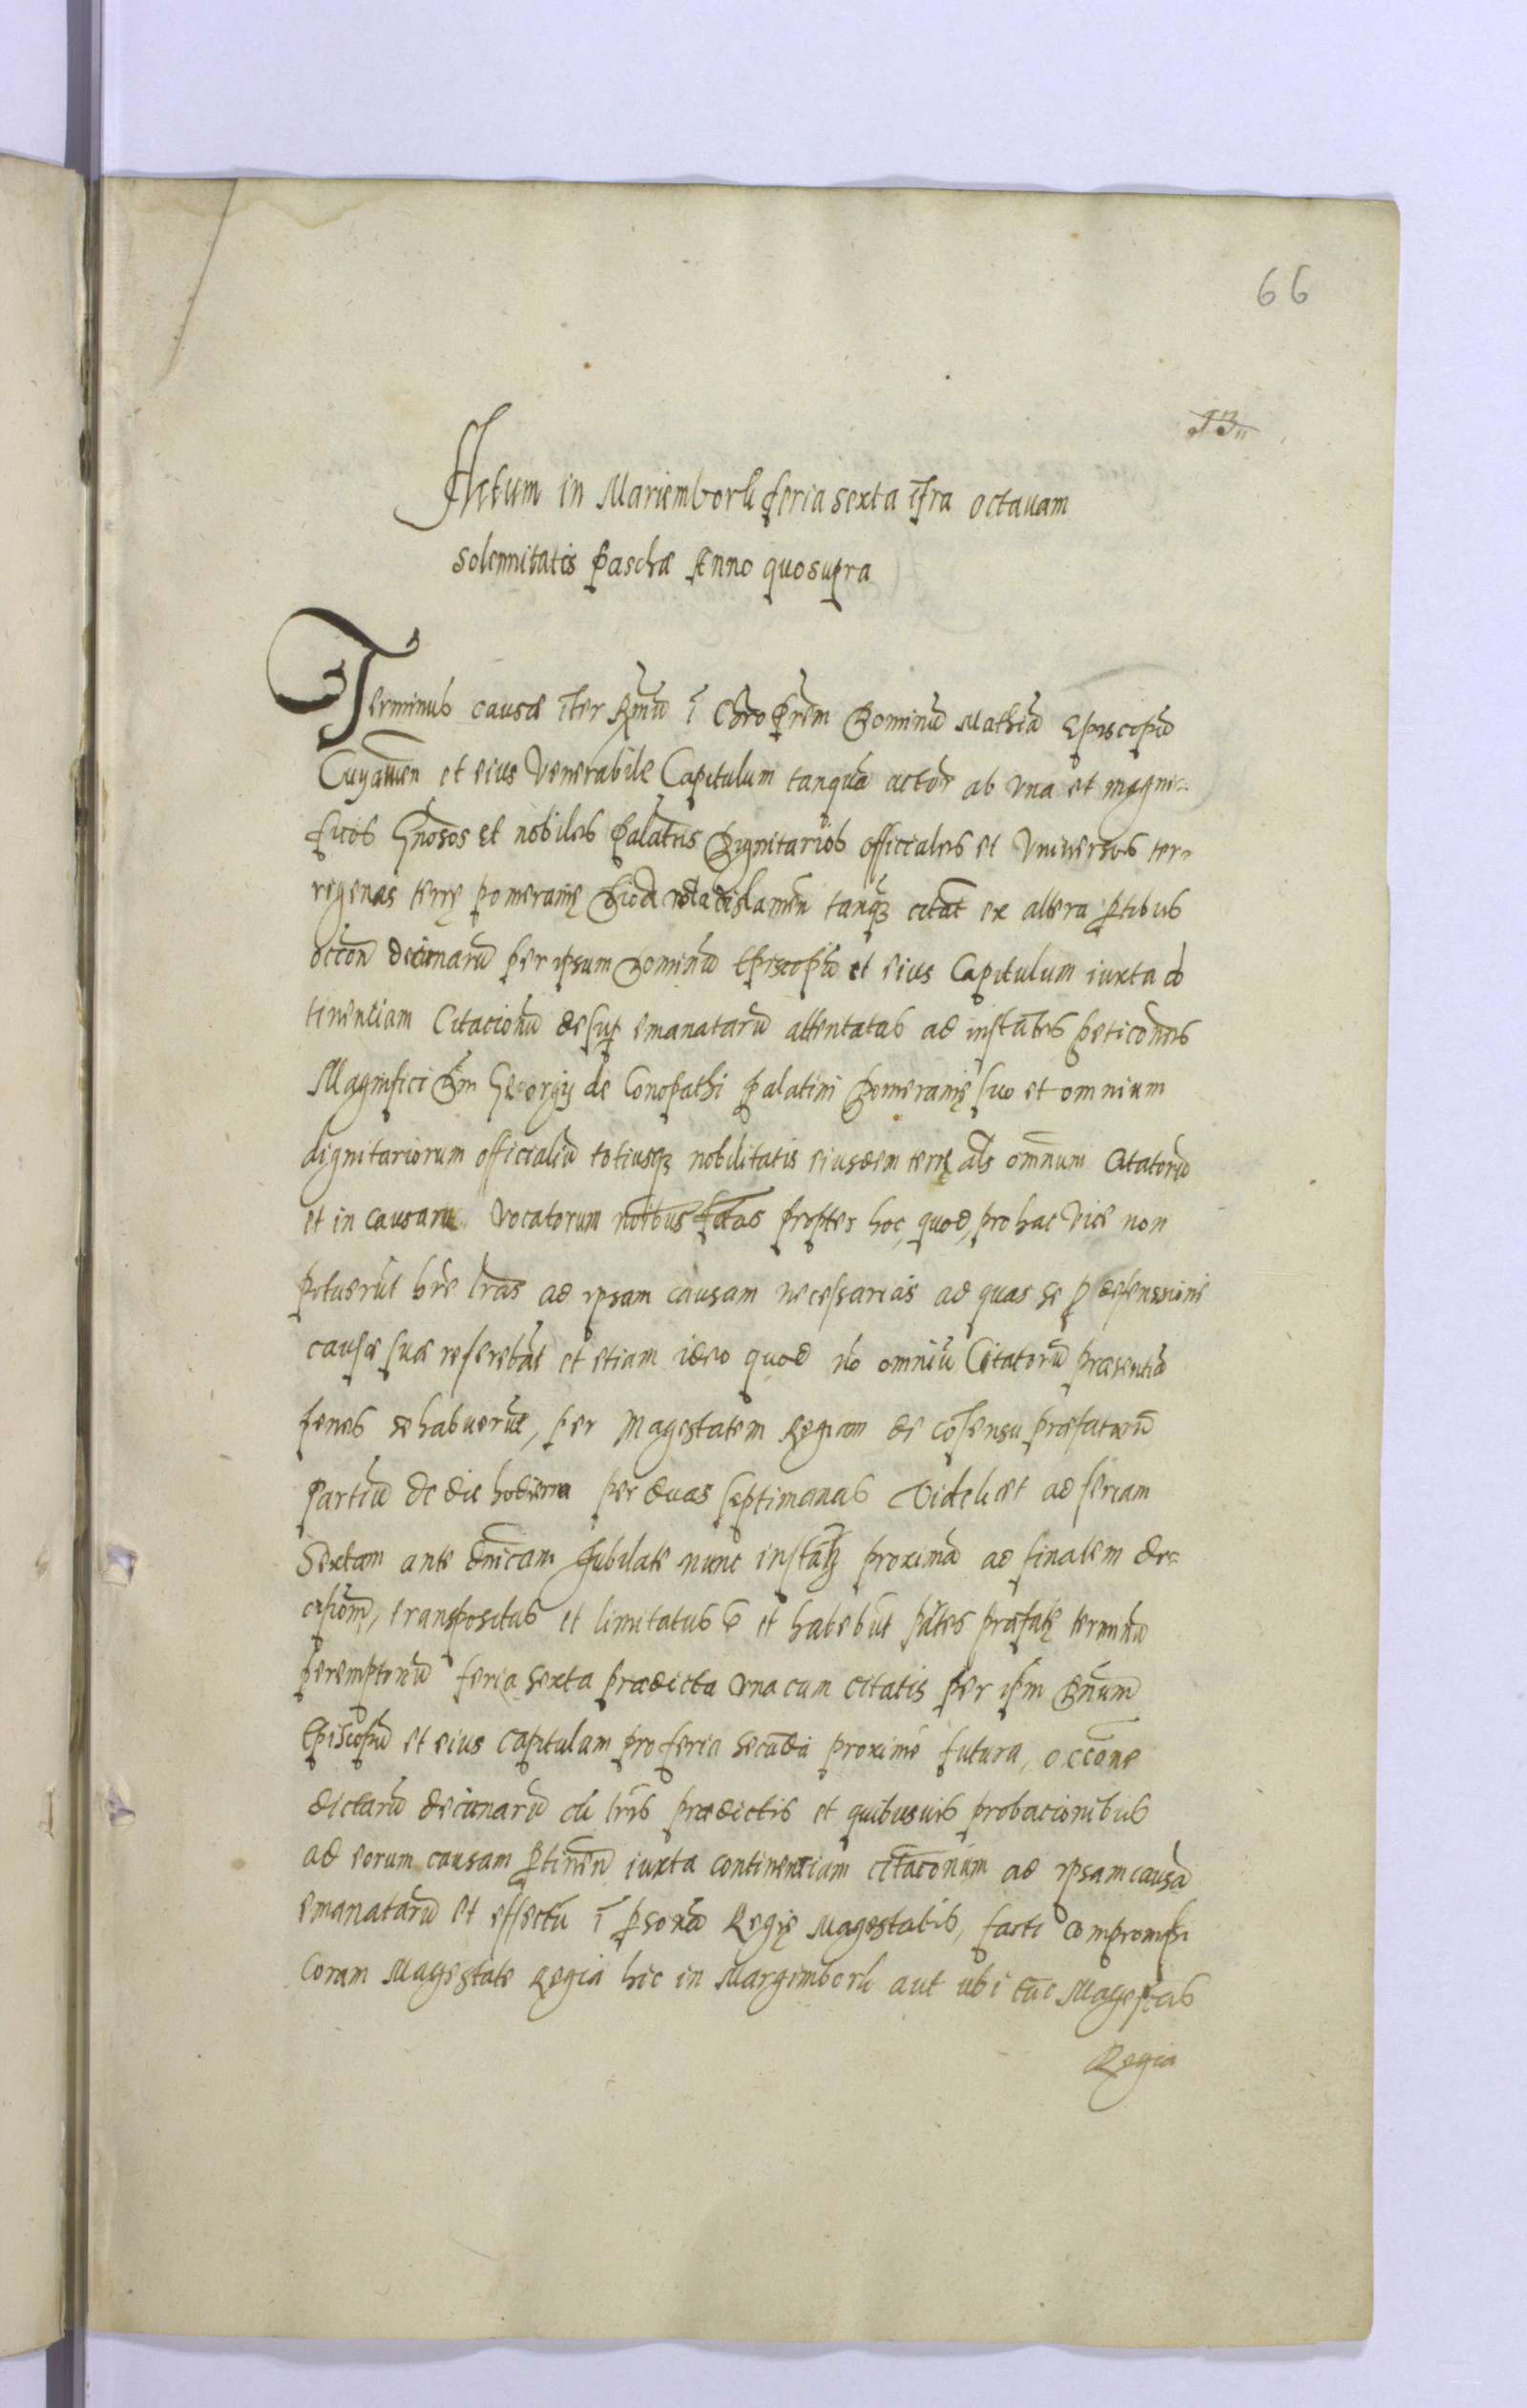 66
Actum in Mariemborh feria sexta ifra octauam
solennitatis Paschæ Anno quo supra
Terminus causæ iter Rmū ī Chro Prem Dominū Mathiā Episcopū
Cuyauien et eius Venerabile Capitulum tanquā actor ab vna et magni=
ficos Gnosos et nobiles Palatis Dignitarios officiales et Vniuersos ter=
rigenas terrę pomeranię Dioć wladislauien tanq3 citat ex altera ptibus
occōn decimarū per ipsum Dominū Episcopū et eius Capitulum iuxta cō
tinentiam Citacionū desup emanatarū attentatas ad instātes peticōnes
Magnifici Dni Georgij de Conopathi palatini Pomeranię suo et omnium
dignitariorum officialiū totiusq3 nobilitatis eiusdem terrę als omnium Citatorū
et in causam vocatorum noibus fctas propter hoc, quod, pro hac vice non
potuerūt hre lras ad ipsam causam necessarias ad quas se p defenssione
causæ suæ referebāt et etiam ideo quod nō omniū Citatorū præsentiā
penes se habuerūt, per Magestatem Regiam de cōsensu præfatarū
partiū de die hodierna per duas septimanas Videlicet ad feriam
Sextam ante dnicam Jubilate nunc instātę proximā ad finalem de=
cisionē, transpositus et limitatus ē et habebūt ptes præfatę terminū
peremptoriū feria sexta prædicta vna cum citatis per ipm Dnum
Episcopū et eius capitulum pro feria secūda proxime futura, occōne
dictarū decimarū cū lris prædictis et quibusuis probacionibus
ad eorum causam ptinēn iuxta continentiam citacōnum ad ipsam causā
emanatarū et effectū ī psonā Regię Magestatis, facti compromissi
Coram Magestate Regia hic in Margimborh aut ubi tūc Magestas
Regia